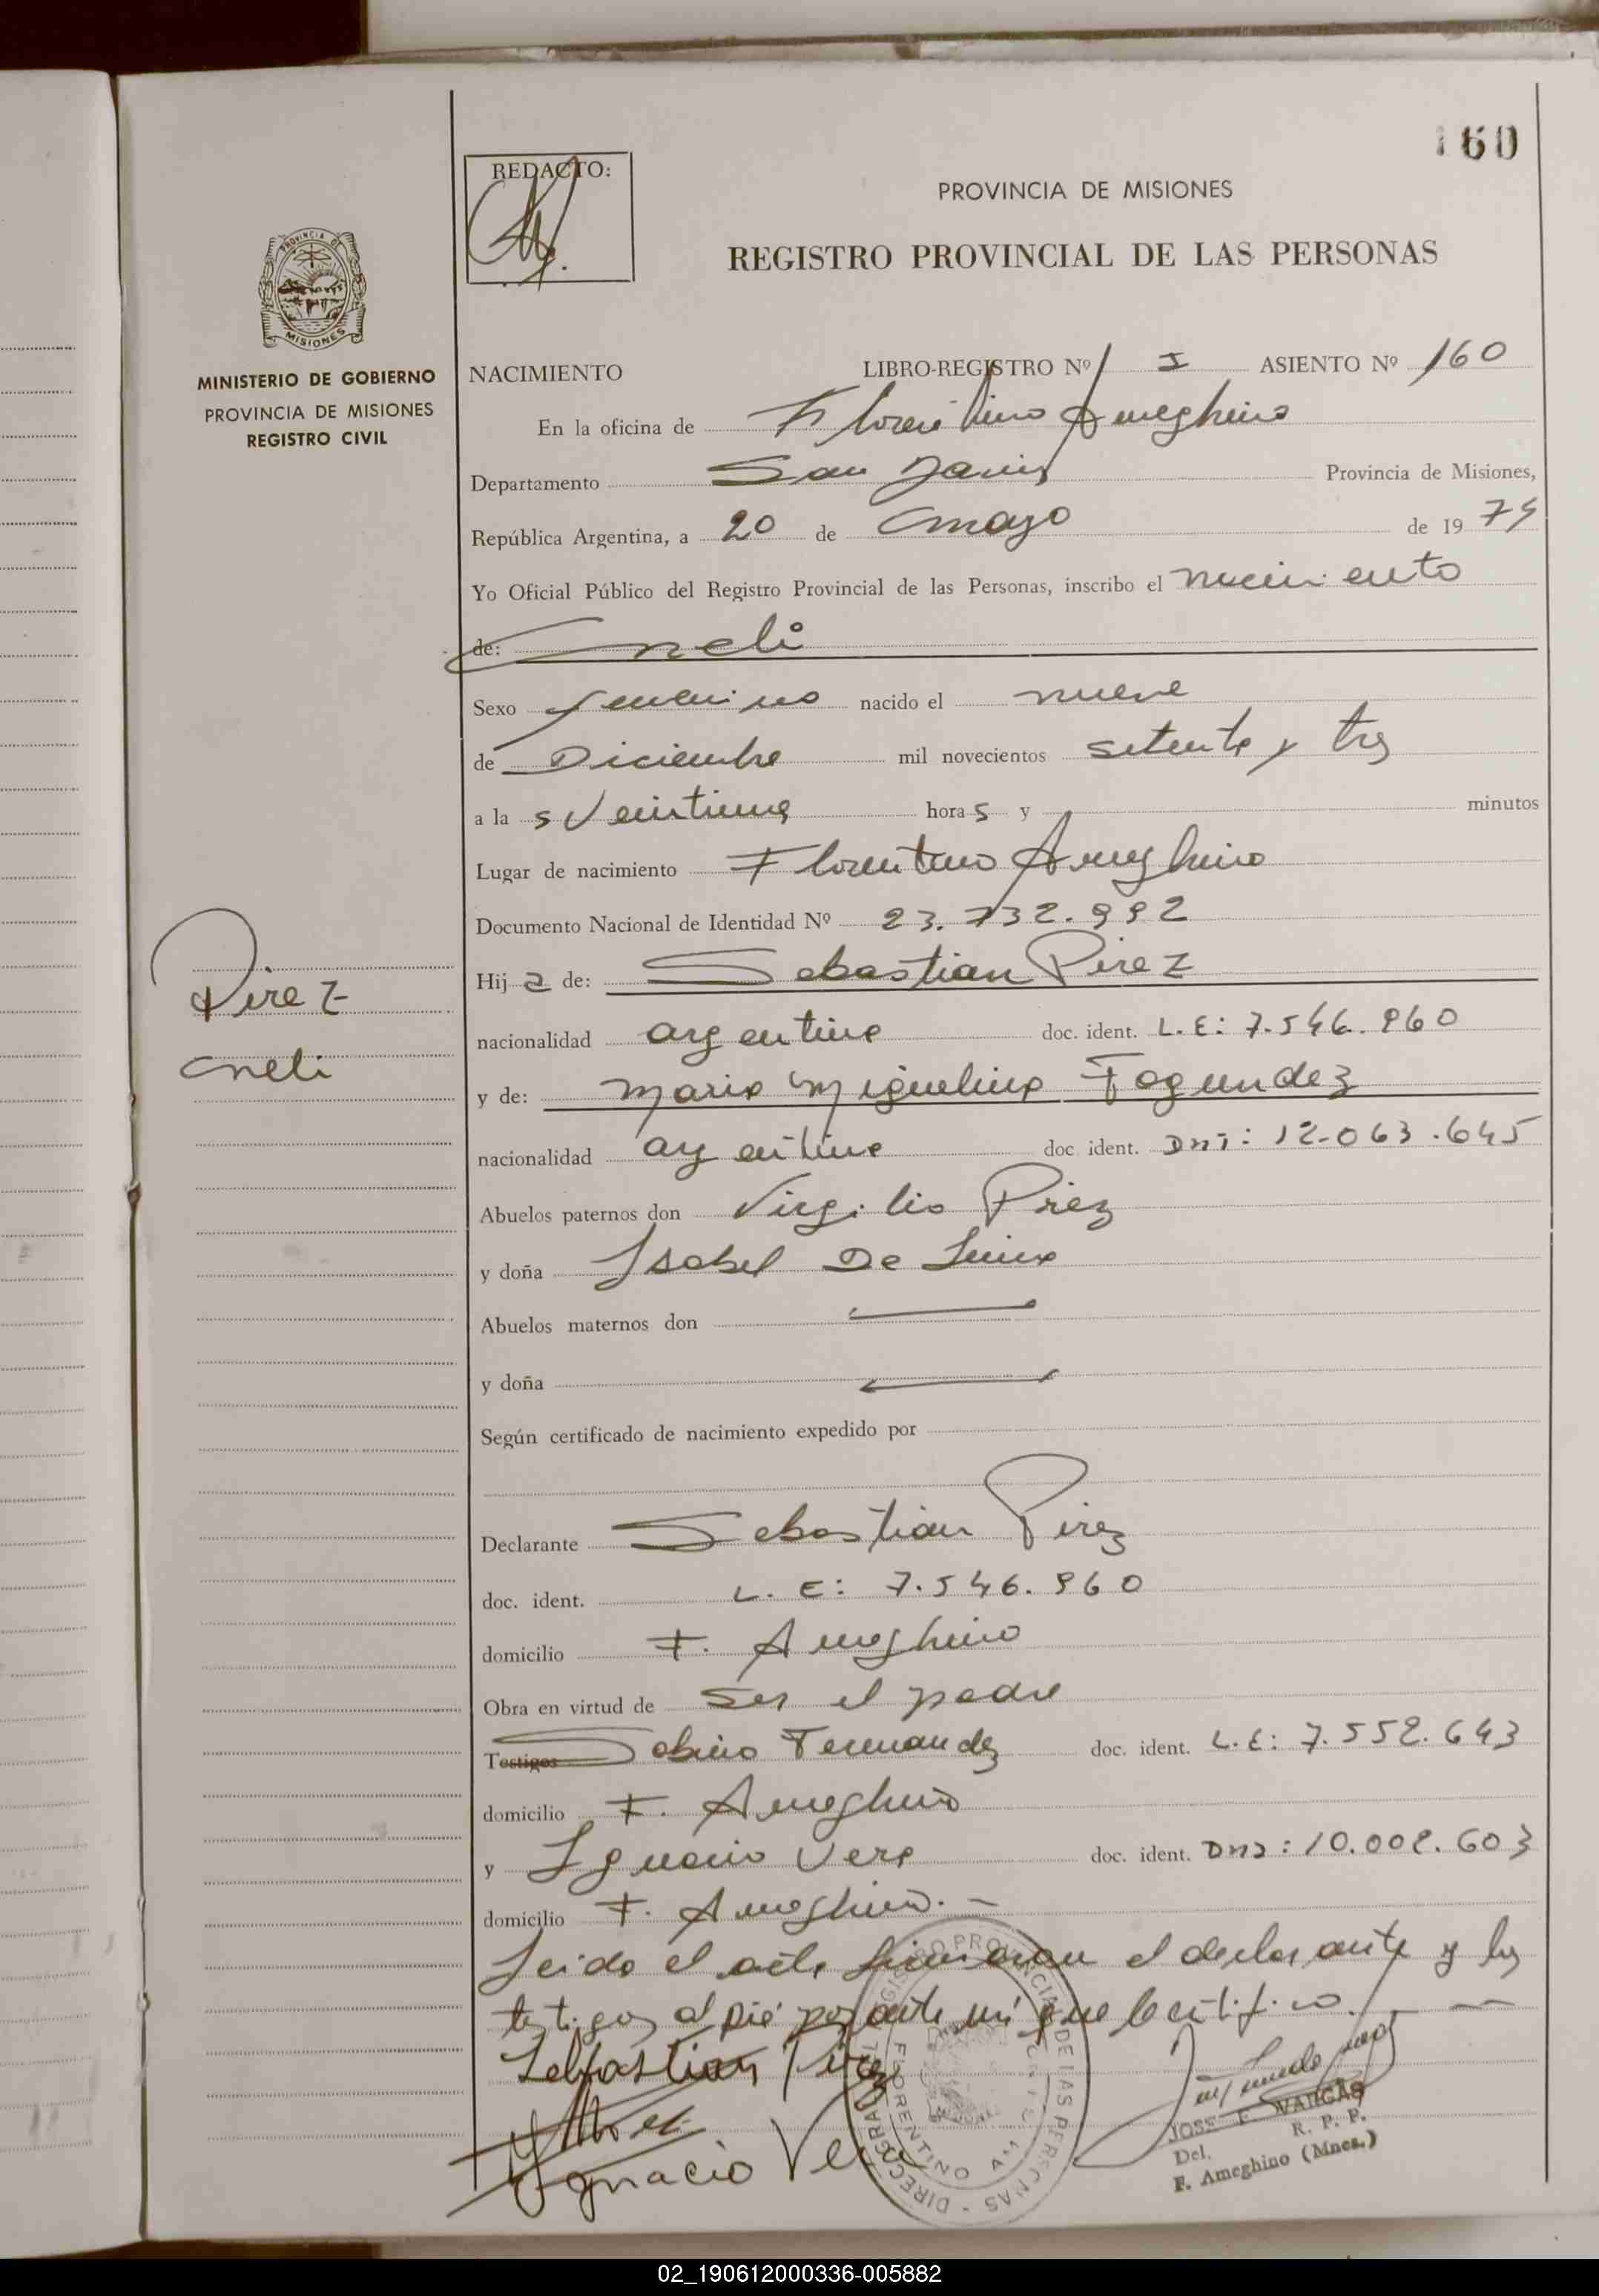 160
REDACTO:
PROVINCIA DE MISIONES
REGISTRO PROVINCIAL DE LAS PERSONAS
PROVINCIA DE
MISIONES
MINISTERIO DE GOBIERNO
PROVINCIA DE MISIONES
REGISTRO CIVIL
NACIMIENTO LIBRO-REGISTRO Nº I ASIENTO Nº 160
En la oficina de Florentino Ameghino
Departamento San Javier Provincia de Misiones,
República Argentina, a 20 de mayo de 19
Yo Oficial Público del Registro Provincial de las Personas, inscribo el nacimiento
de: Neli
Sexo femenino nacido el nueve
de Diciembre mil novecientos setenta y tres
a la s Veintiuna hora s y minutos
Lugar de nacimiento Florentino Ameghino
Documento Nacional de Identidad Nº 23.732.992
Hij a de: Sebastian Pirez
Pirez
Neli
nacionalidad argentina doc. ident. L.E: 7.546.960
y de: Maria Miguelina Fagundez
nacionalidad argentina doc ident. DNI: 12.063.645
Abuelos paternos don Virgilio Pirez
y doña Isabel De Lima
Abuelos maternos don
y doña
Según certificado de nacimiento expedido por
Declarante Sebastian Pirez
doc. ident. L.E: 7.546.960
domicilio F. Ameghino
Obra en virtud de ser el padre
Testigos Sabino Fernandez doc. ident. L.E: 7.552.643
domicilio F. Ameghino
y Ignacio Vera doc. ident. DNI: 10.002.603
domicilio F. Ameghino.-
Leido el acta firmaron el declarante y los
testigos al pié por ante mi que certifico.
Sebastian Pirez
Ignacio Vera
REGISTRO PROVINCIAL DE LAS PERSONAS - DIRECC. GRAL.
FLORENTINO AM
JOSE F. VARGAS
Del. R. P. P.
F. Ameghino (Mnes.)
02_190612000336-005882